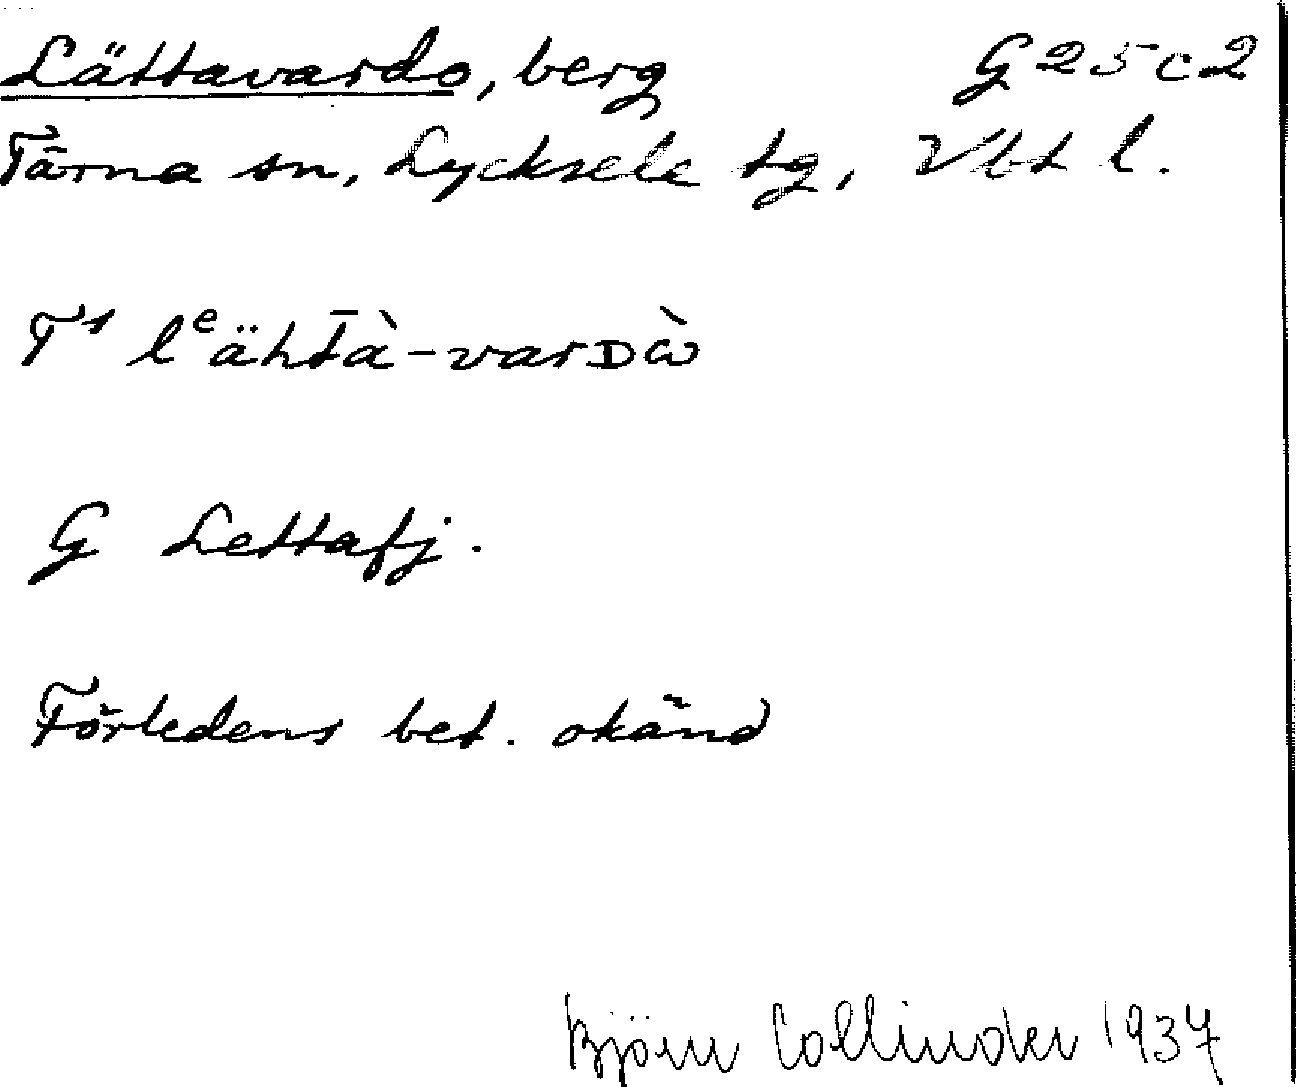 Lättavardo, berg G25c2
Tärna sn, Lycksele tg, Vbt l.
T¹ lᵉäht̄à-varᴅὼ
G Lettafj.
Förledens bet. okänd
Björn Collinder 1937